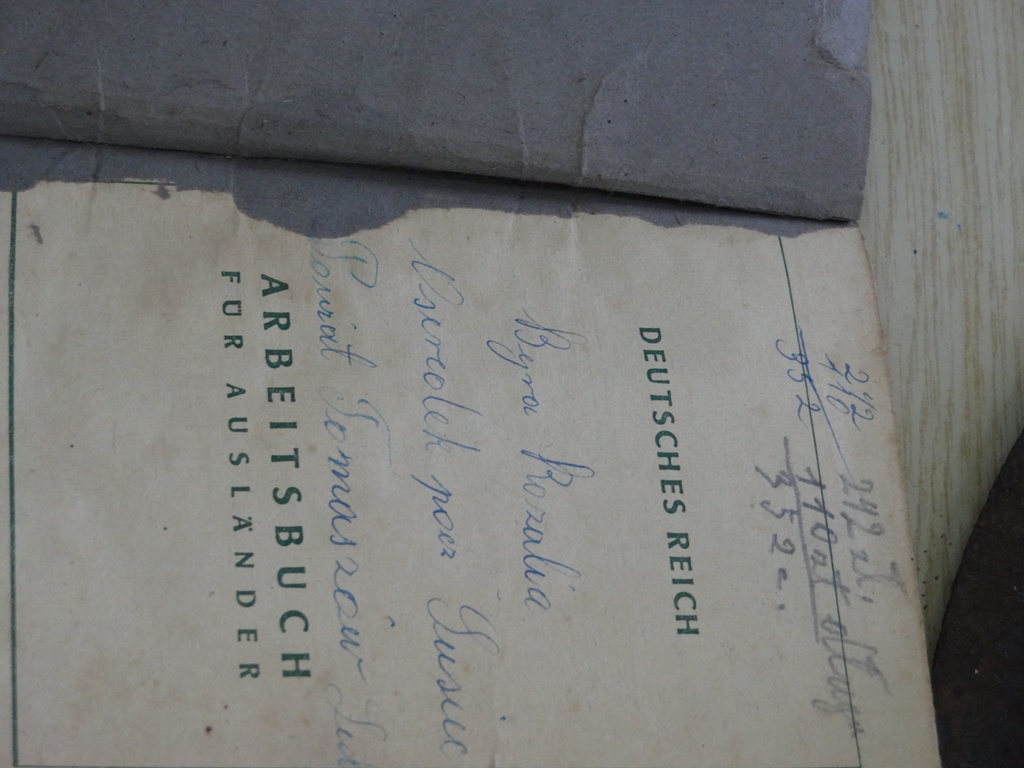 242
110
352
242 zł.
110 zł
352 -.
DEUTSCHES REICH
Byra Rozalia
poez Susiec
Powiat Tomaszów
ARBEITSBUCH
FÜR AUSLÄNDER